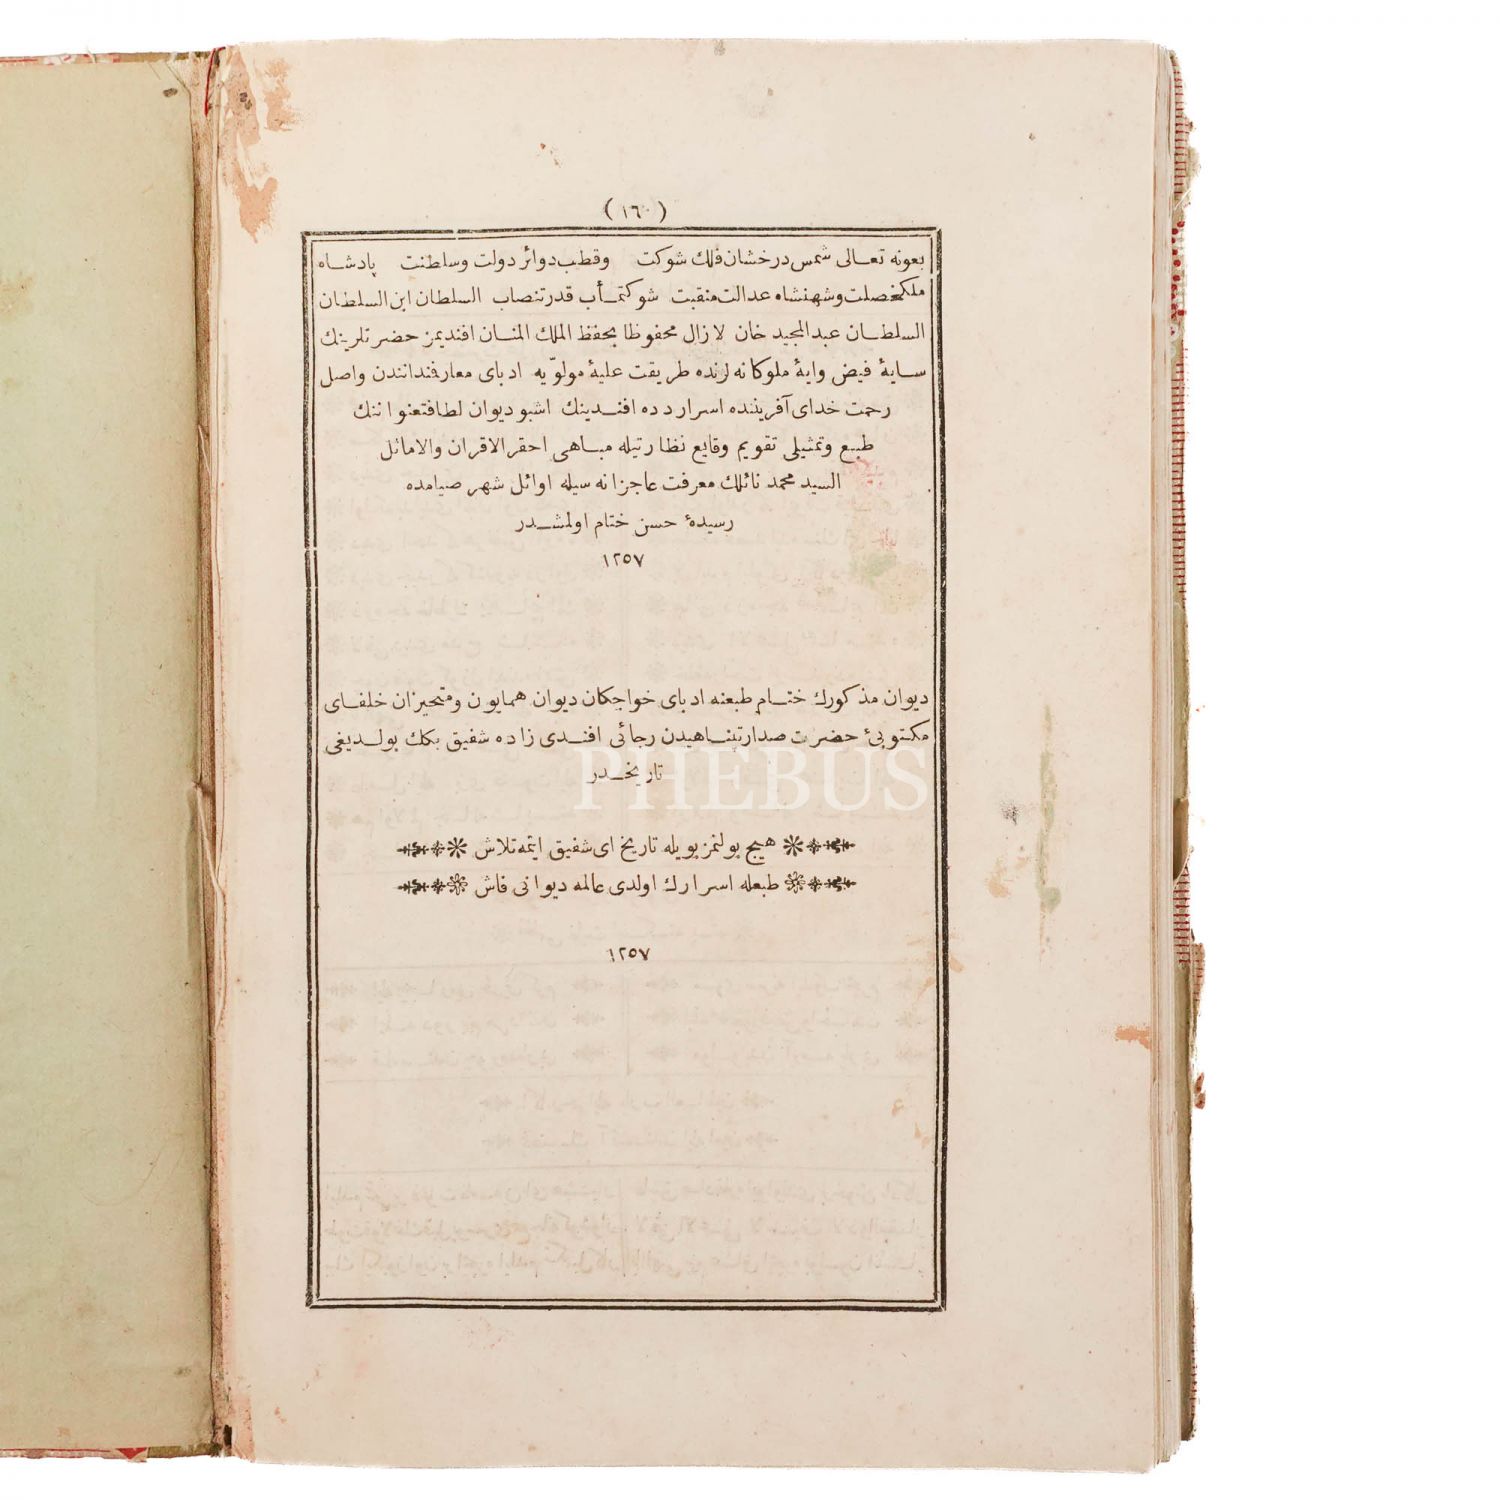 (١٦٠)
بعونه تعالی شمس درخشان فلك شوكت وقطب دوائر دولت وسلطنت پادشاه
ملكخصلت وشهنشاه عدالت منقبت شوكتمأب قدرتنصاب السلطان ابن السلطان
السلطان عبدالمجيد خان لازال محفوظا بحفظ الملك المنان افنديمز حضرتلرينك
سايۀ فيض وايۀ ملوكانه لرنده طريقت عليۀ مولويه ادبای معارفنداندن واصل
رحمت خدای آفريننده اسرار دده افندينك اشبو ديوان لطافتعنواننك
طبع وتمثيلی تقويم وقايع نظارتيله مباهی احقر الاقران والاماثل
السيد محمد نائلك معرفت عاجزانه سيله اوائل شهر صيامده
رسيدۀ حسن ختام اولمشدر
١٢٥٧
ديوان مذكورك ختام طبعنه ادبای خواجكان ديوان همايون ومتحيزان خلفای
مكتوبیء حضرت صدارتپناهيدن رجائی افندی زاده شفيق بكك بولديغی
تاريخدر
PHEBUS
هيچ بولنمز بويله تاريخ ای شفيق ايتمه تلاش
طبعله اسرارك اولدی عالمه ديوانی فاش
١٢٥٧